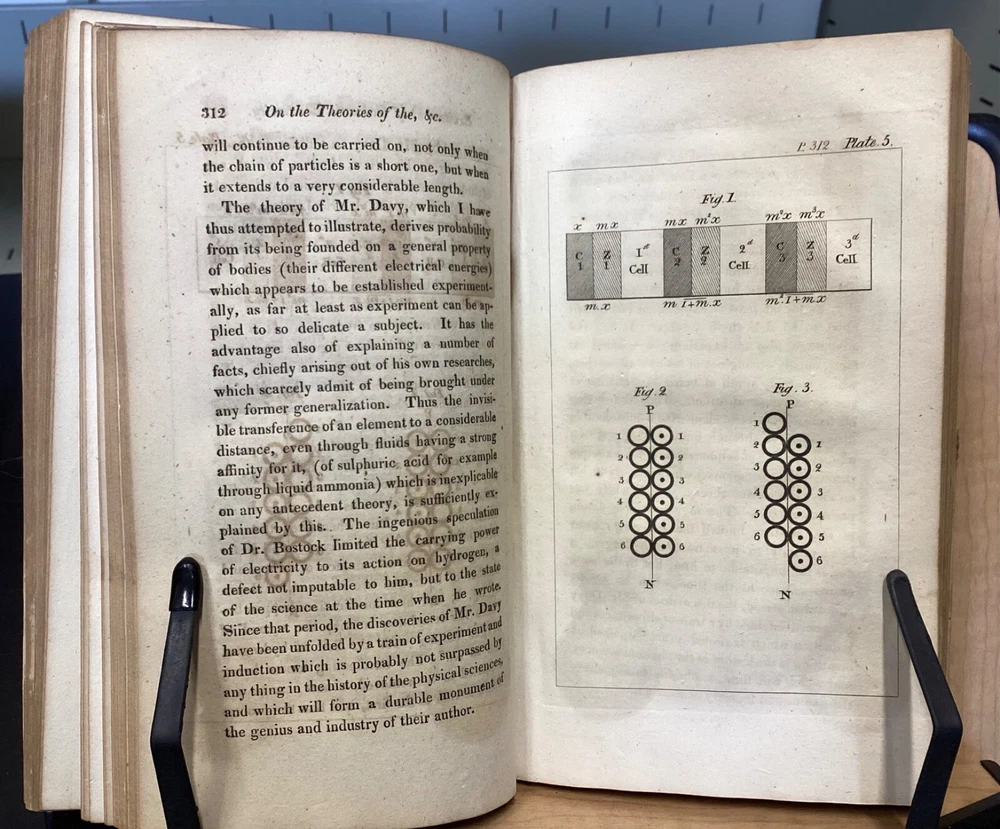 312 On the Theories of the, &c.
will continue to be carried on, not only when
the chain of particles is a short one, but when
it extends to a very considerable length.
The theory of Mr. Davy, which I have
thus attempted to illustrate, derives probability
from its being founded on a general property
of bodies (their different electrical energies)
which appears to be established experiment-
ally, as far at least as experiment can be ap-
plied to so delicate a subject. It has the
advantage also of explaining a number of
facts, chiefly arising out of his own researches,
which scarcely admit of being brought under
any former generalization. Thus the invisi-
ble transference of an element to a considerable
distance, even through fluids having a strong
affinity for it, (of sulphuric acid for example
through liquid ammonia) which is inexplicable
on any antecedent theory, is sufficiently ex-
plained by this. The ingenious speculation
of Dr. Bostock limited the carrying power
of electricity to its action on hydrogen, a
defect not imputable to him, but to the state
of the science at the time when he wrote.
Since that period, the discoveries of Mr. Davy
have been unfolded by a train of experiment and
induction which is probably not surpassed by
any thing in the history of the physical sciences,
and which will form a durable monument of
the genius and industry of their author.
P. 312 Plate. 5.
Fig. 1.
x m x m x m²x m²x m³x
C 1 Z 1 1st Cell C 2 Z 2 2d Cell C 3 Z 3 3d Cell
m.x m 1+m.x m².1+m.x
Fig. 2
P
1 1
2 2
3 3
4 4
5 5
6 6
N
Fig. 3.
P
1
2 1
3 2
4 3
5 4
6 5
6
N